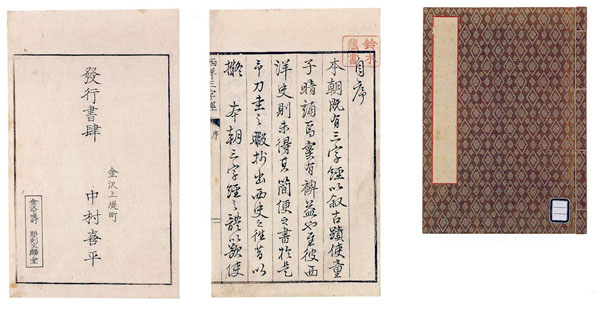 自序
本朝既有三字經以叙古蹟使童
子暗誦焉寔有裨益也至彼西
洋史則未得其簡便之書於是
予刀圭之暇抄出西史之往昔以
擬 本朝三字經之體以欲使
西洋三字經 序 一
發行書肆
金沢上堤町
中村喜平